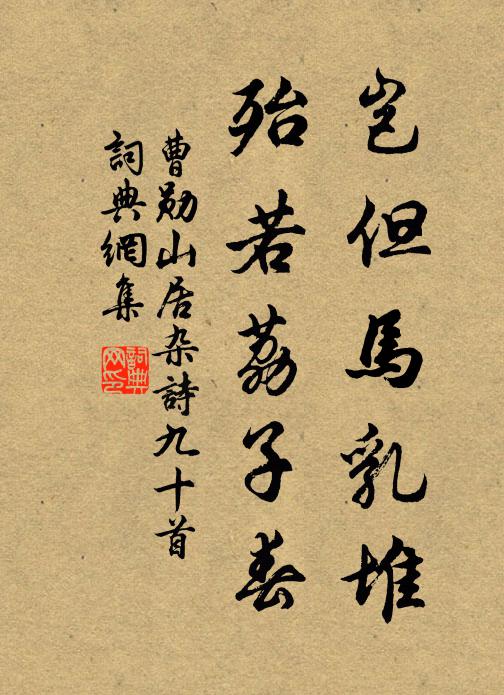 岂但馬乳堆
殆若荔子春
曹勋山居杂詩九十首
詞典網集
詞典网印